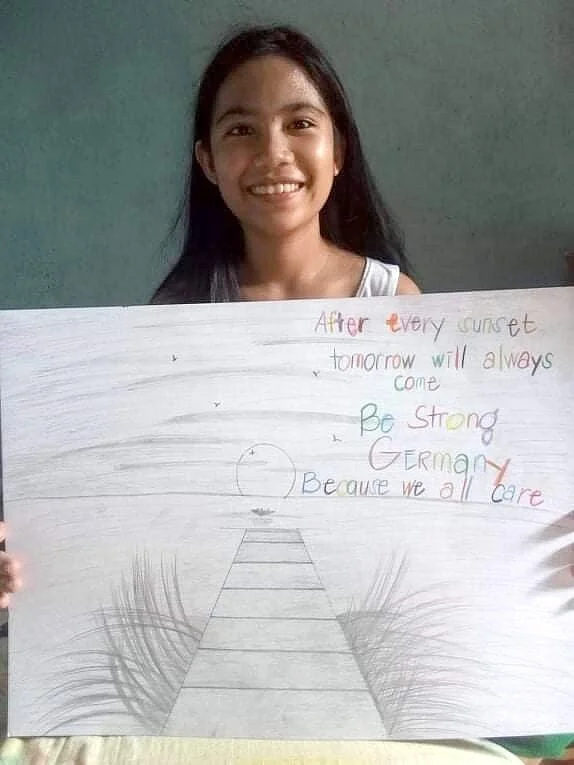 After every sunset
tomorrow will always
come
Be Strong
GERMANY
Because we all care